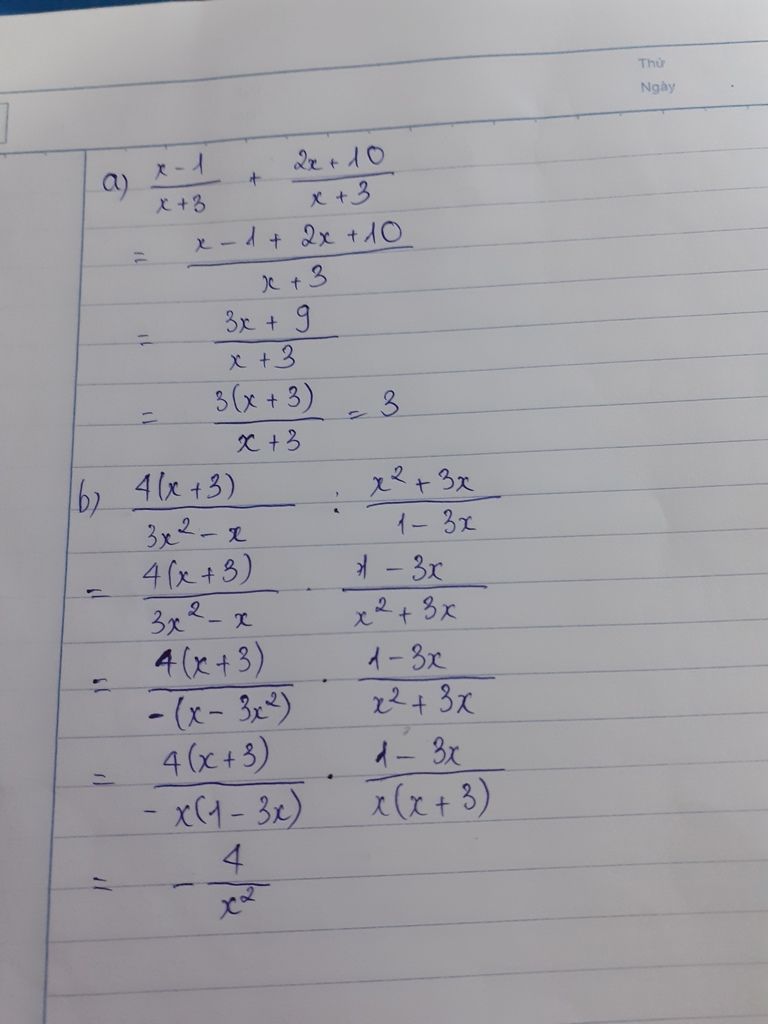 Thứ
Ngày
a) \frac{x-1}{x+3} + \frac{2x+10}{x+3}
= \frac{x-1+2x+10}{x+3}
= \frac{3x+9}{x+3}
= \frac{3(x+3)}{x+3} = 3
b) \frac{4(x+3)}{3x^2-x} : \frac{x^2+3x}{1-3x}
= \frac{4(x+3)}{3x^2-x} . \frac{1-3x}{x^2+3x}
= \frac{4(x+3)}{-(x-3x^2)} . \frac{1-3x}{x^2+3x}
= \frac{4(x+3)}{-x(1-3x)} . \frac{1-3x}{x(x+3)}
= -\frac{4}{x^2}